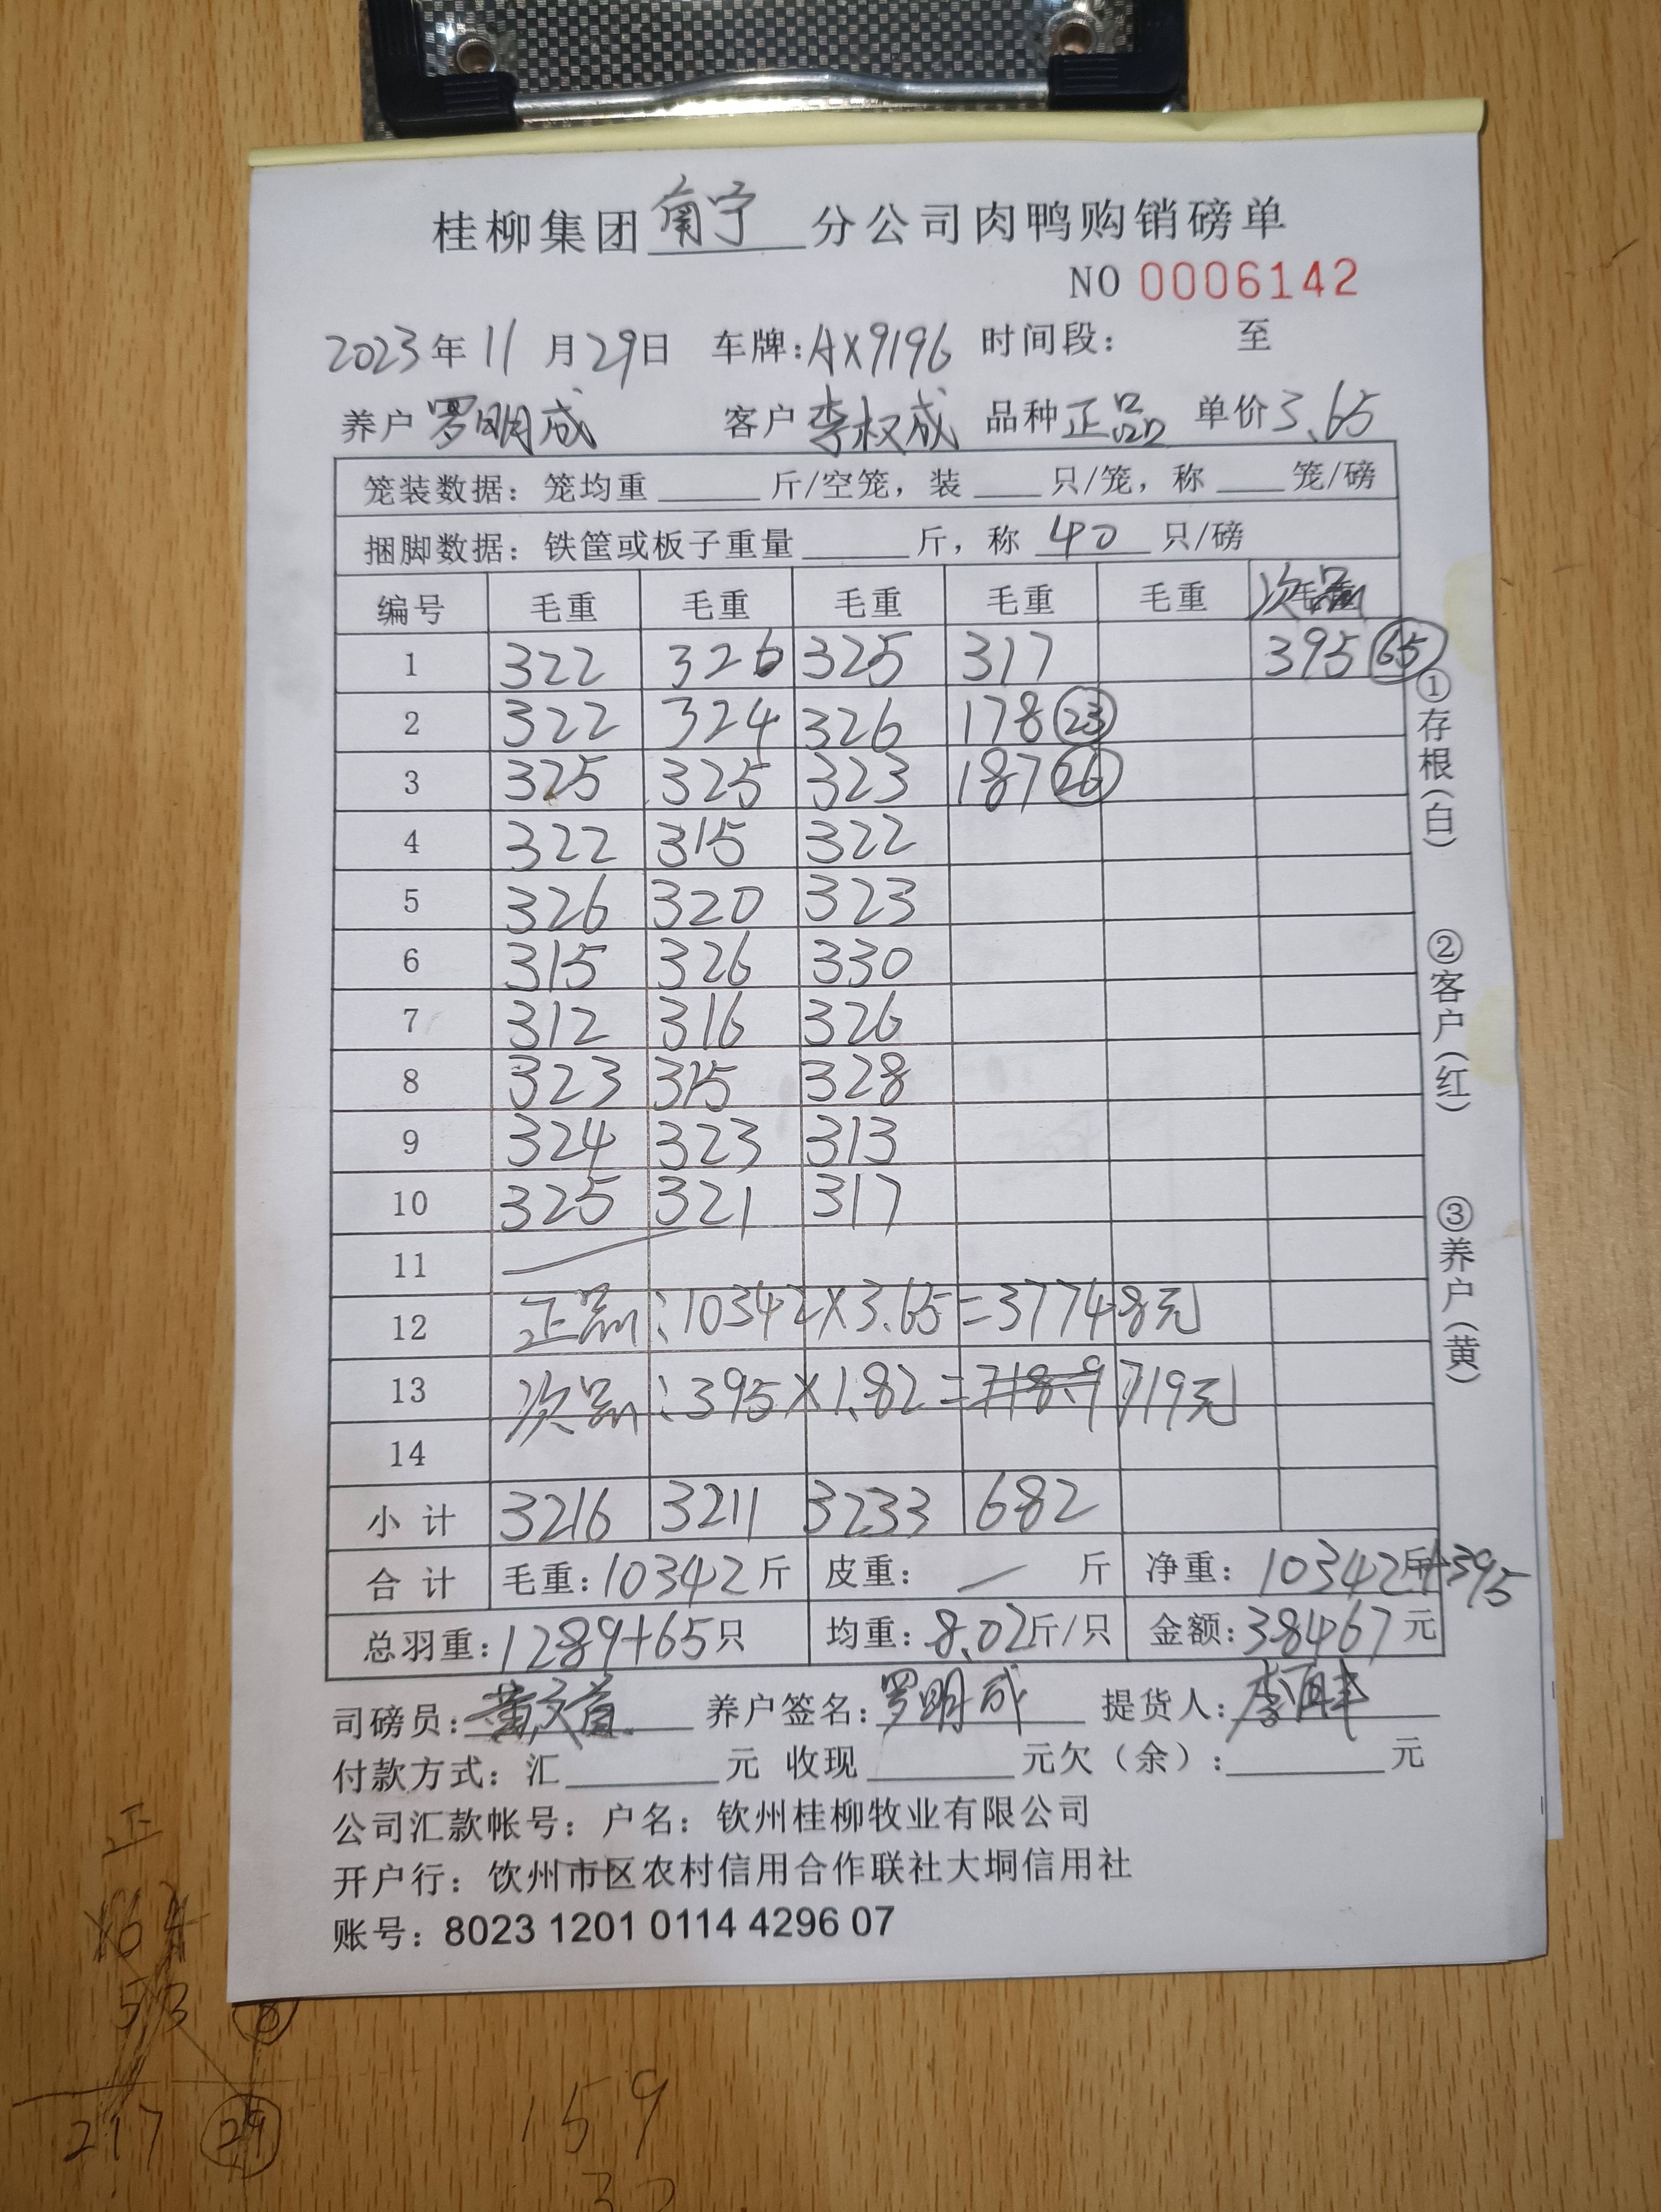 桂柳集团 南宁 分公司肉鸭购销磅单
NO 0006142
2023年 11 月 29日 车牌: AX9196 时间段: 至
养户 罗明成 客户 李权成 品种 正品 单价 3.65
笼装数据: 笼均重 ____ 斤/空笼, 装 ____ 只/笼, 称 ____ 笼/磅
捆脚数据: 铁筐或板子重量 ____ 斤, 称 40 只/磅
编号 毛重 毛重 毛重 毛重 毛重 次品
1 322 326 325 317 395 65
2 322 324 326 178 23
3 325 325 323 187 26
4 322 315 322
5 326 320 323
6 315 326 330
7 312 316 326
8 323 315 328
9 324 323 313
10 325 321 317
11
12 正品:10342×3.65=37748元
13 次品:395×1.82=718.9 719元
14
小计 3216 3211 3233 682
合计 毛重: 10342斤 皮重: — 斤 净重: 10342斤+395
总羽重: 1289+65只 均重: 8.02斤/只 金额: 38467元
司磅员: 养户签名: 罗明成 提货人:
付款方式: 汇 ____ 元 收现 ____ 元欠(余): ____ 元
公司汇款帐号: 户名: 钦州桂柳牧业有限公司
开户行: 钦州市区农村信用合作联社大垌信用社
账号: 8023 1201 0114 4296 07
①存根(白)
②客户(红)
③养户(黄)
正
53
217 29
159